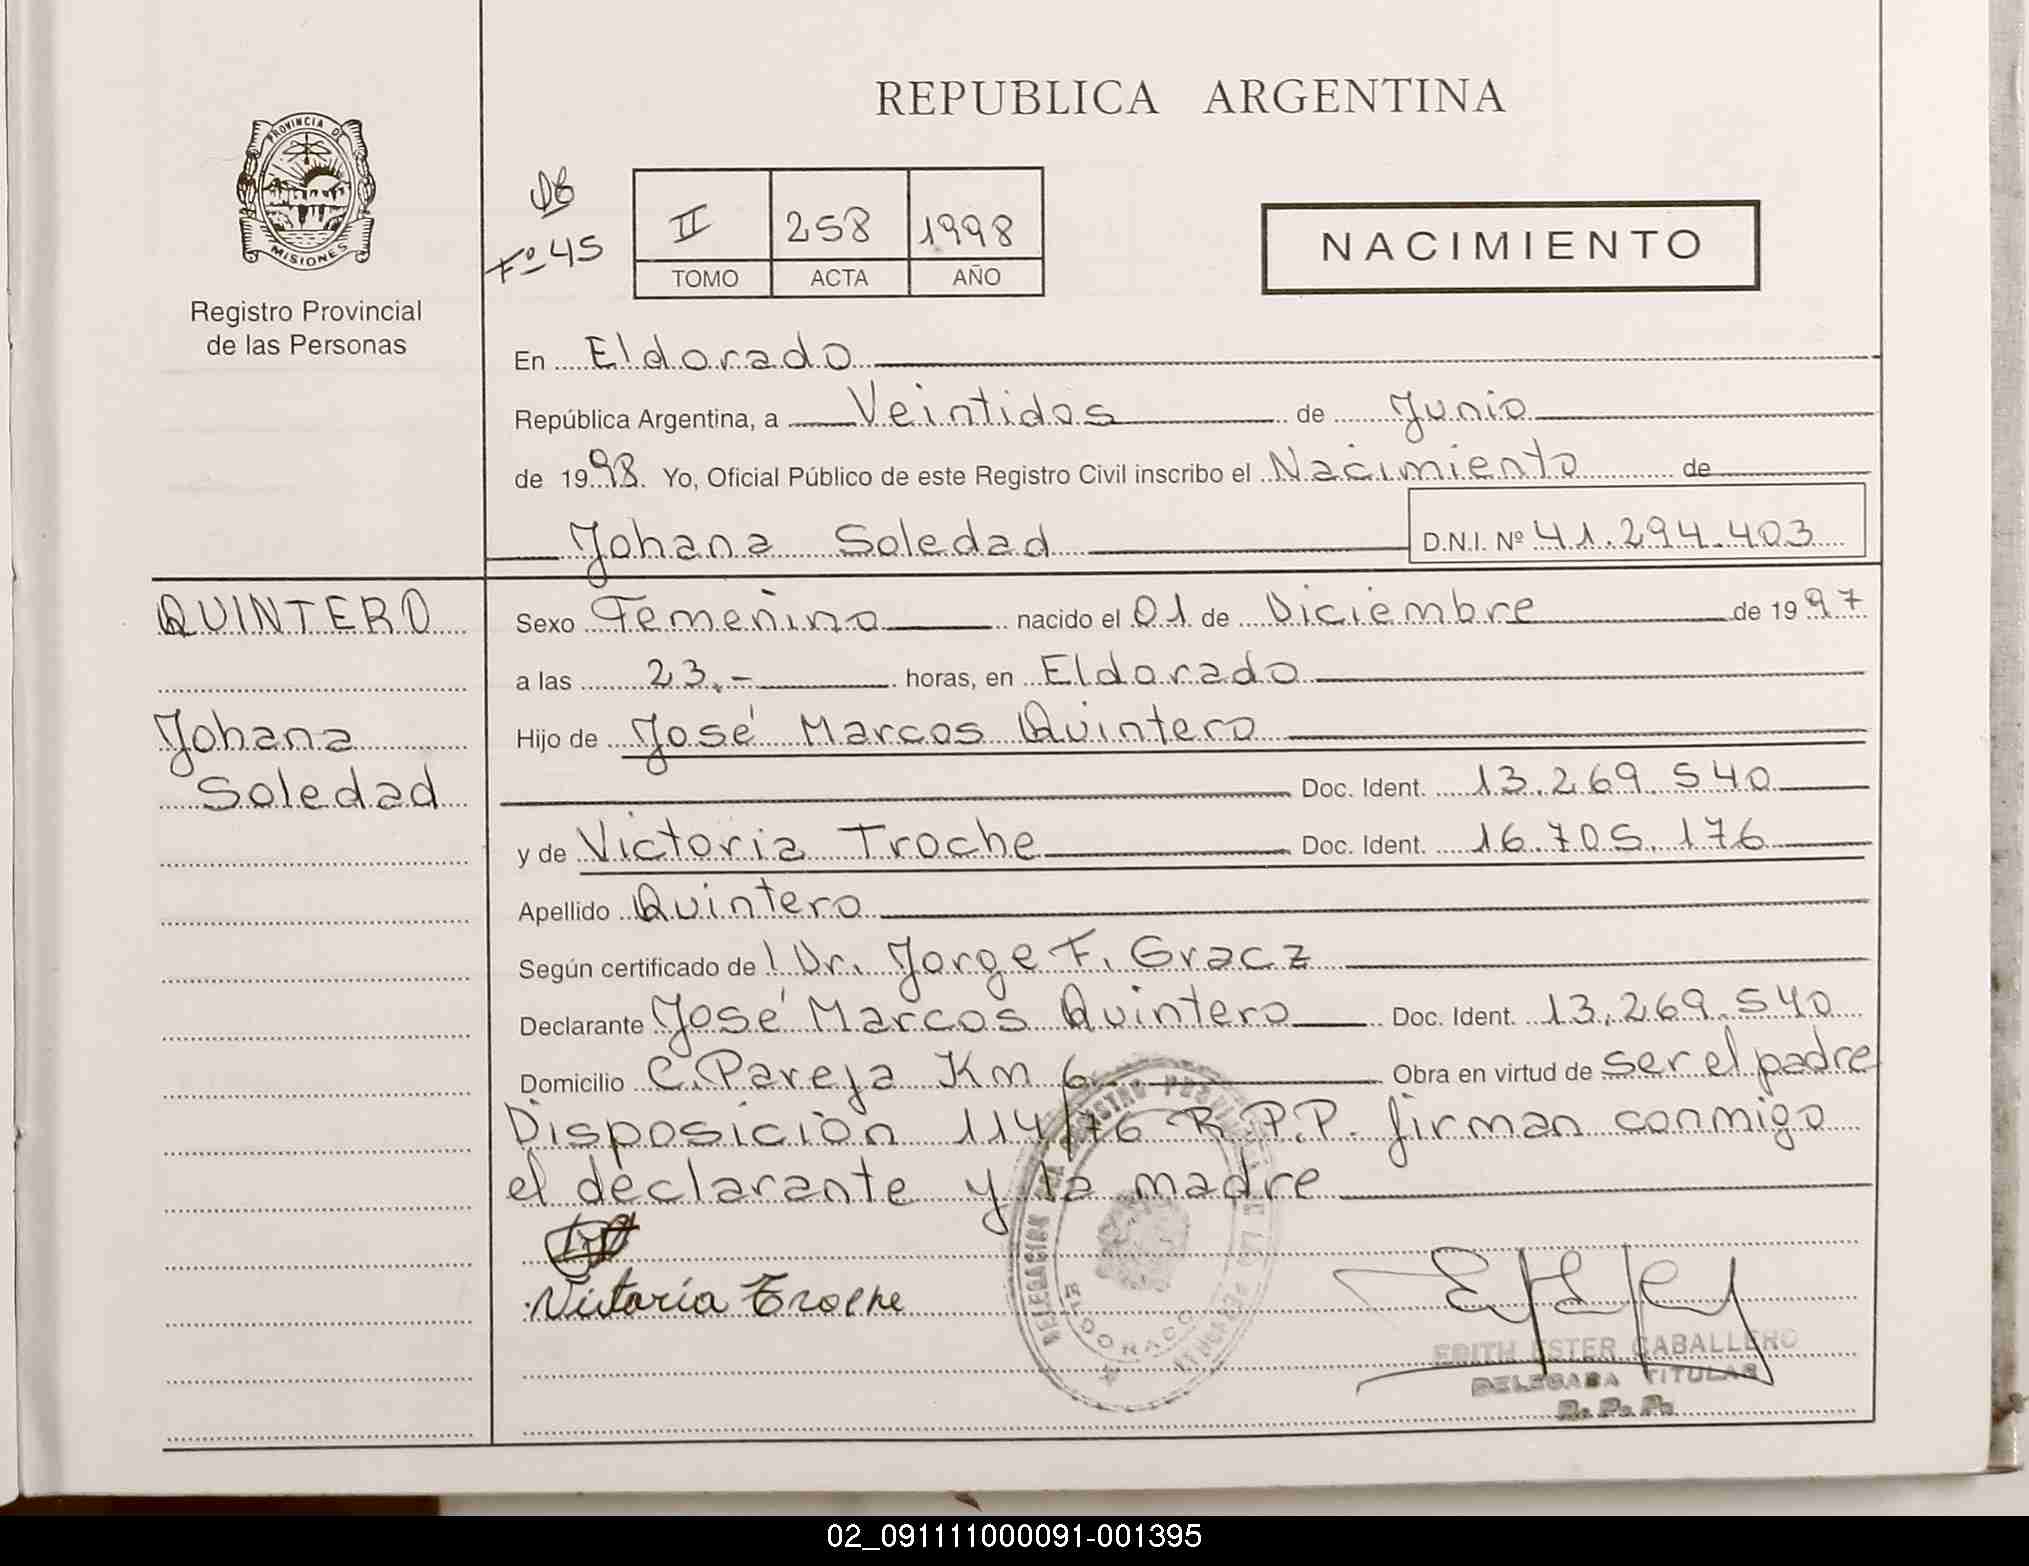 REPUBLICA ARGENTINA
PROVINCIA DE
MISIONES
Registro Provincial
de las Personas
Fº 45
II 258 1998
TOMO ACTA AÑO
NACIMIENTO
En Eldorado
República Argentina, a Veintidos de Junio
de 1998. Yo, Oficial Público de este Registro Civil inscribo el Nacimiento de
Johana Soledad D.N.I. Nº 41.294.403
QUINTERO
Johana
Soledad
Sexo Femenino nacido el 01 de Diciembre de 1997
a las 23.- horas, en Eldorado
Hijo de José Marcos Quintero
Doc. Ident. 13.269.540
y de Victoria Troche Doc. Ident. 16.705.176
Apellido Quintero
Según certificado de l Dr. Jorge F. Gracz
Declarante José Marcos Quintero Doc. Ident. 13.269.540
Domicilio C. Pareja Km 6 Obra en virtud de ser el padre
Disposición 114/76 R.P.P. firman conmigo
el declarante y la madre
Victoria Troche
EDITH ESTER CABALLERO
DELEGADA TITULAR
R.P.P.
02_091111000091-001395